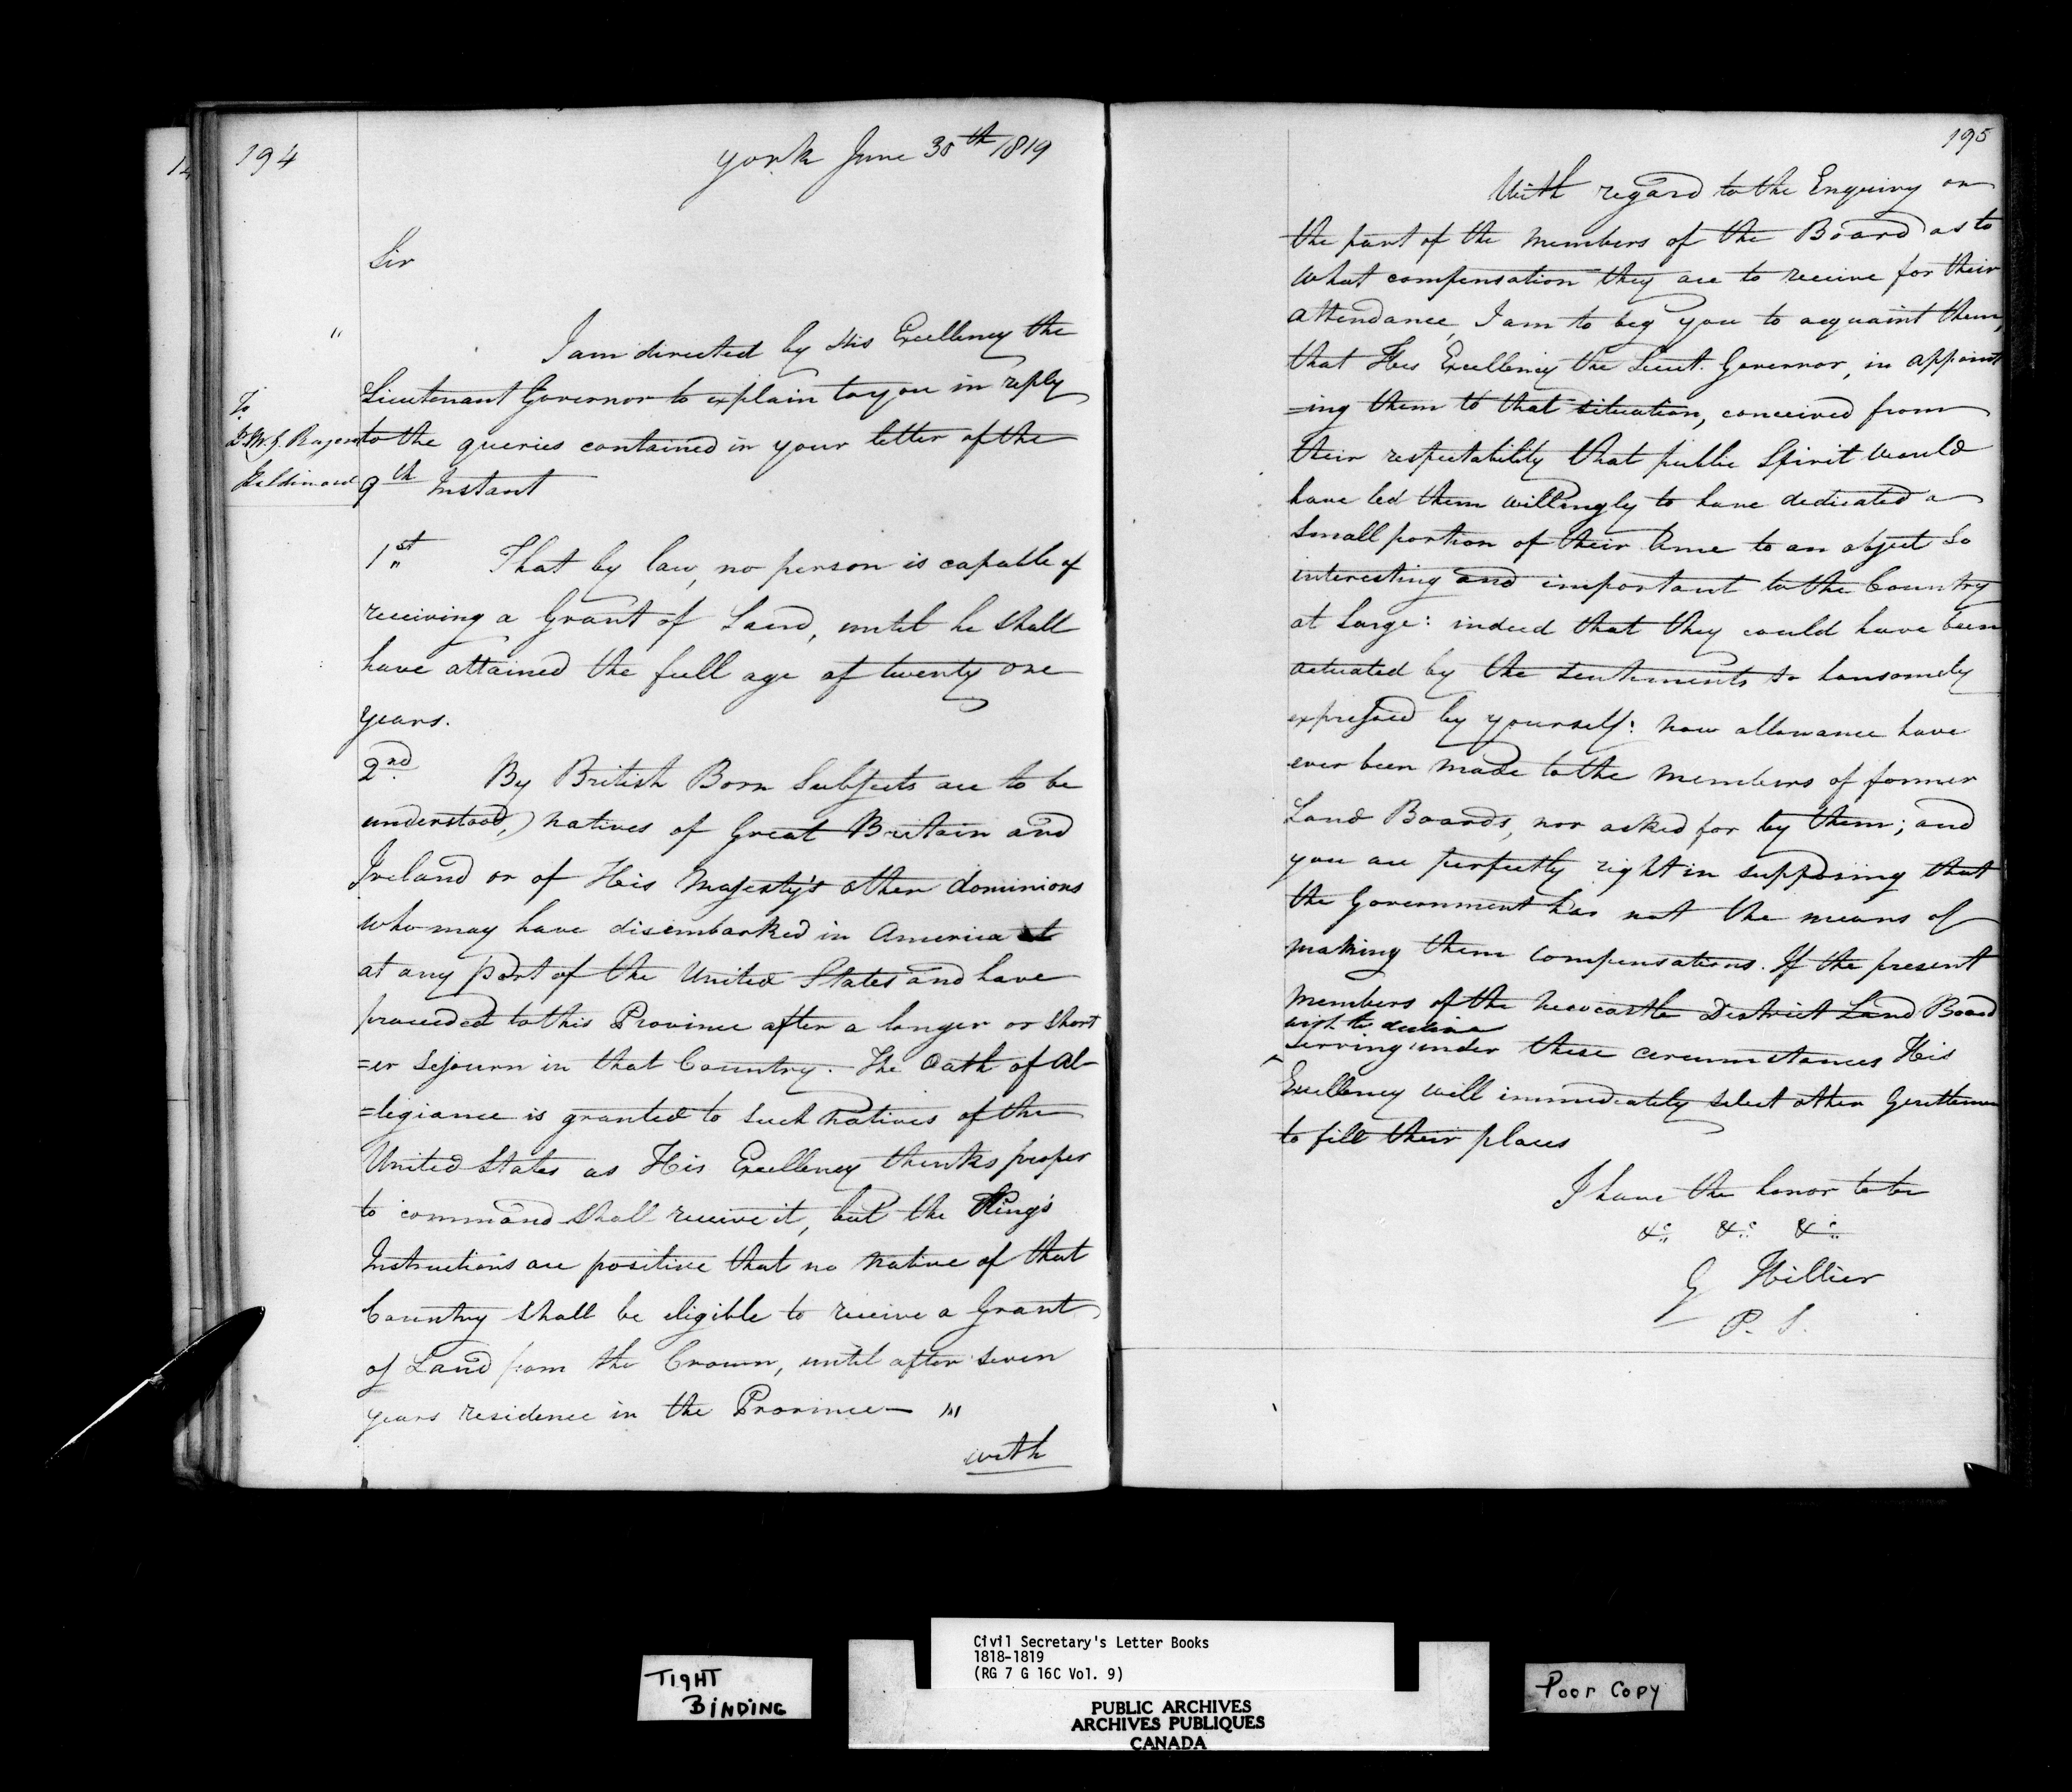 194
York June 30th 1819
Sir
I am directed by His Excellency the
Lieutenant Governor to explain to you in reply
to the queries contained in your letter of the
9th Instant
To
1st That by law, no person is capable of
receiving a Grant of Land, until he shall
have attained the full age of twenty one
years.
2nd By British Born Subjects are to be
understood,) natives of Great Britain and
Ireland or of His Majesty's other dominions
who may have disembarked in America
at any port of the United States and have
proceeded to this Province after a longer or short
=er Sejourn in that Country. The Oath of Al-
=legiance is granted to such Natives of the
United States as His Excellency thinks proper
to command shall receive it, but the King's
Instructions are positive that no native of that
Country shall be eligible to receive a Grant
of Land from the Crown, until after seven
years residence in the Province—
with
195
With regard to the Enquiry on
the part of the Members of the Board as to
what compensation they are to receive for their
attendance, I am to beg you to acquaint them,
that His Excellency the Lieut. Governor, in appoint
=ing them to that situation, conceived from
their respectability that public Spirit would
have led them willingly to have dedicated a
small portion of their time to an object so
interesting and important to the Country
at Large: indeed that they could have been
actuated by the sentiments so hansomely
expressed by yourself: now allowance have
ever been made to the Members of former
Land Boards, nor asked for by them; and
you are perfectly right in supposing that
the Government has not the means of
making them compensations. If the present
Members of the Newcastle District Land Board
wish to decline
serving under these circumstances His
Excellency will immediately select other Gentlemen
to fill their places
I have the honor to be
&c &c &c
G Hillier
P. S.
TIGHT
BINDING
Civil Secretary's Letter Books
1818-1819
(RG 7 G 16C Vol. 9)
PUBLIC ARCHIVES
ARCHIVES PUBLIQUES
CANADA
Poor Copy